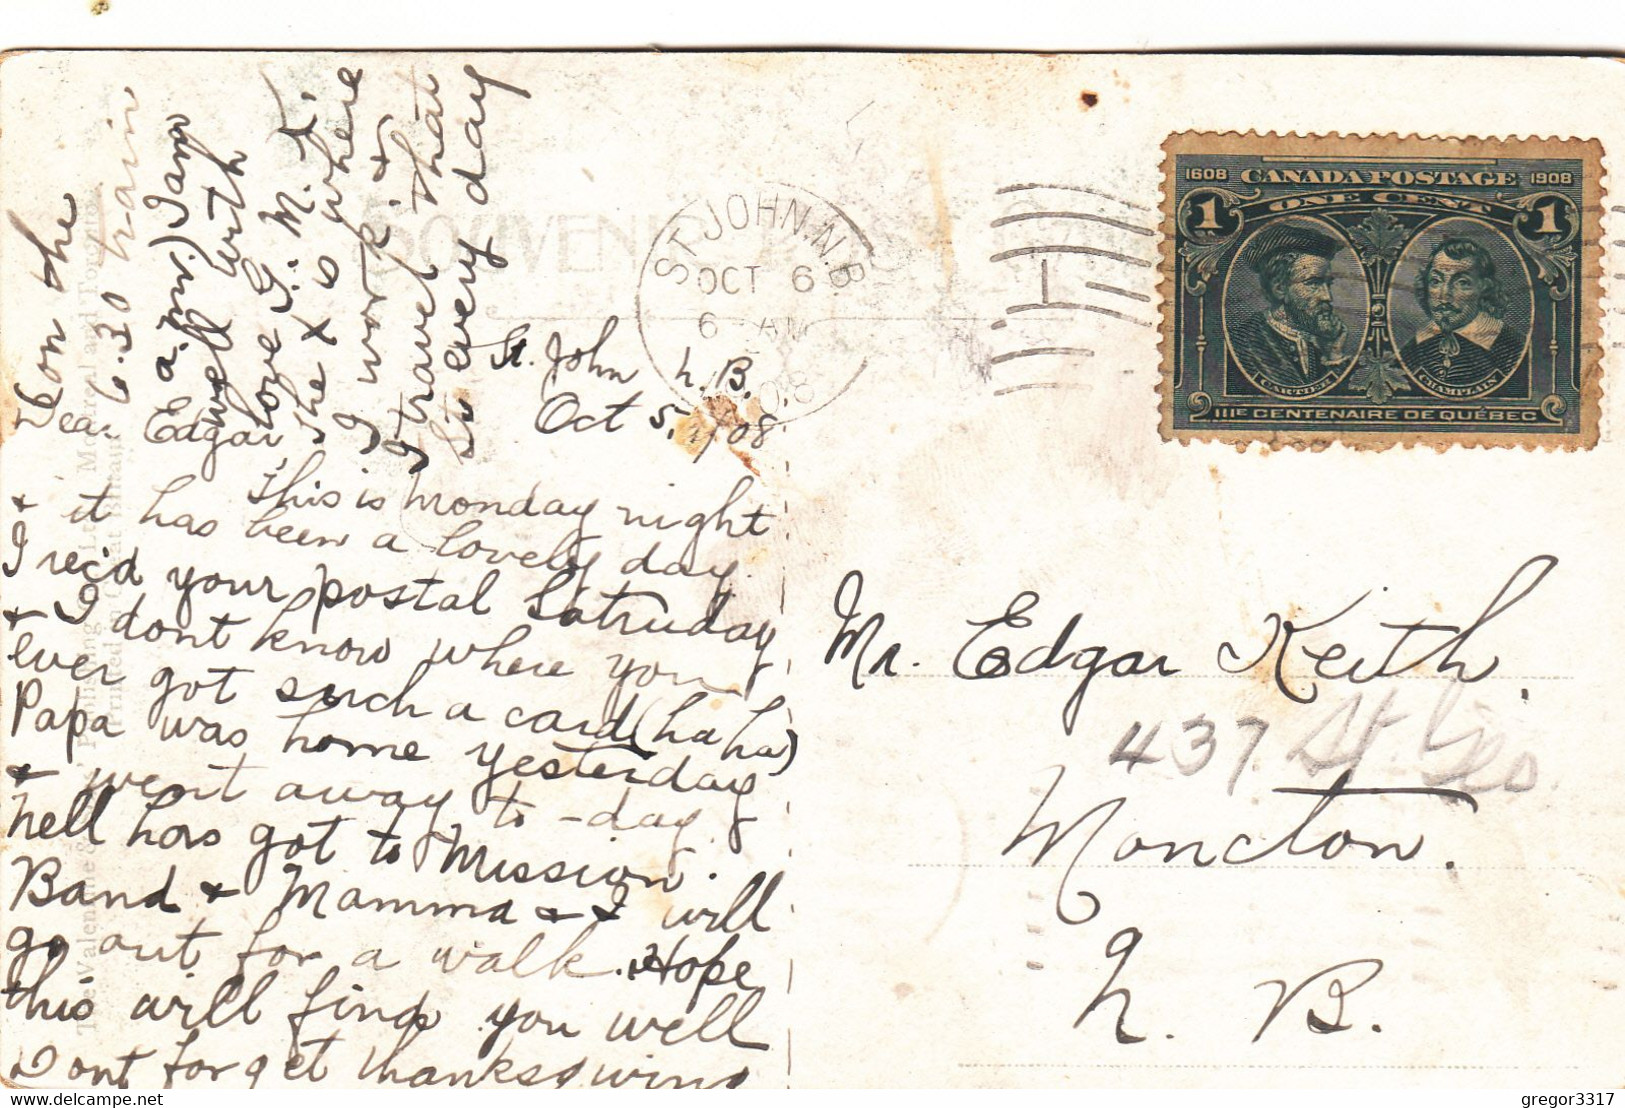 St. John N. B.
Oct 5, 1908
Dear Edgar,
This is Monday night
& it has been a lovely day.
I rec'd your postal Satruday
& I dont know where you
ever got such a card (ha ha)
Papa was home yesterday
& went away to-day.
Nell has got to Mission
Band & Mamma & I will
go out for a walk. Hope
this will find you well
Dont forget thanksgiving
on the
6.30 train
a.m.) I am
well with
love G. M. D.
The X is where
I work &
I travel that
St every day
SOUVENIR
ST. JOHN. N.B.
OCT 6
6 - AM
08
1608 CANADA POSTAGE 1908
1 ONE CENT 1
CARTIER CHAMPLAIN
IIIE CENTENAIRE DE QUÉBEC
Mr. Edgar Keith.
437 St. Geo
Moncton.
N. B.
gregor3317